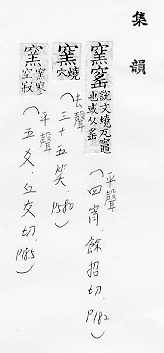 集韻
窯窰 說文燒瓦竈也或从䍃
(平聲 四宵.餘招切.P182)
窯 燒穴
(去聲 三十五笑 P580)
窯 窯寮空寂
(平聲 五爻.幺交切.P185)